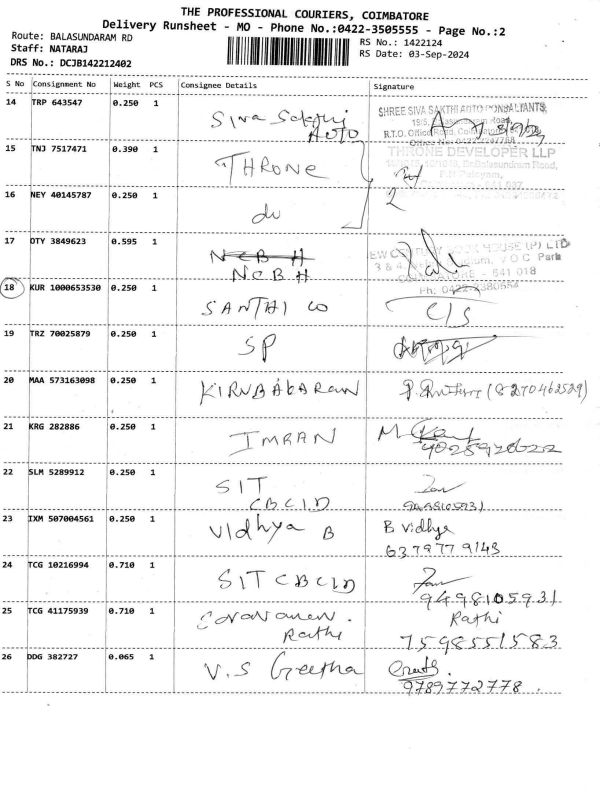 THE PROFESSIONAL COURIERS, COIMBATORE
Delivery Runsheet - MO - Phone No.:0422-3505555 - Page No.:2
Route: BALASUNDARAM RD
RS No.: 1422124
Staff: NATARAJ
RS Date: 03-Sep-2024
DRS No.: DCJB142212402
S No Consignment No Weight PCS Consignee Details Signature
14 TRP 643547 0.250 1 Siva Sakthi
AUTO
SHREE SIVA SAKTHI AUTO
R.T.O. Office Road,
15 TNJ 7517471 0.390 1 THRONE
THRONE DEVELOPER LLP
16 NEY 40145787 0.250 1 do
17 OTY 3849623 0.595 1 NCBH
NCBH
HOUSE (P) LTD
V O C Park
641 018
Ph: 0422-2380554
18 KUR 1000653530 0.250 1 SANTHI CO
19 TRZ 70025879 0.250 1 SP
20 MAA 573163098 0.250 1 KIRUBAKARAN (8270462529)
21 KRG 282886 0.250 1 IMRAN
22 SLM 5289912 0.250 1 SIT
CBCID
23 IXM 507004561 0.250 1 Vidhya B B Vidhya
6379779143
24 TCG 10216994 0.710 1 SIT CBCID
9498105931
25 TCG 41175939 0.710 1 Saravanan. Rathi
Rathi 7598551583
26 DDG 382727 0.065 1 V.S Geetha
9789772778.